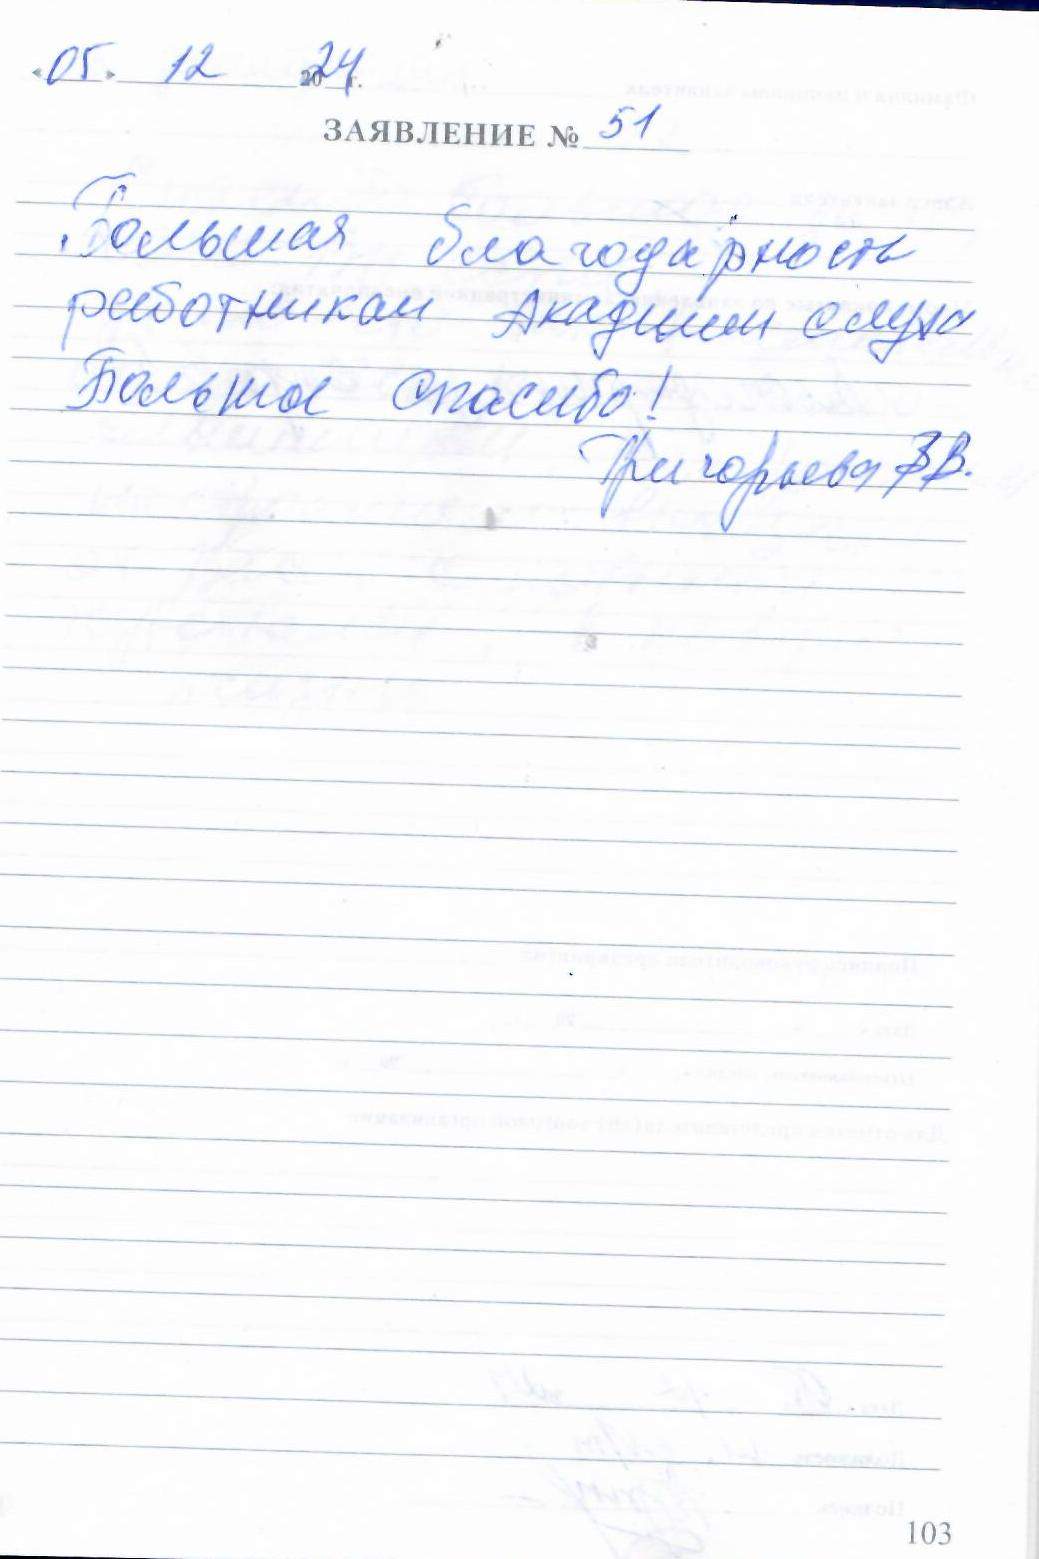 «05» 12 2024 г.
ЗАЯВЛЕНИЕ № 51
Большая благодарность
работникам Академии слуха
Большое спасибо!
Григорьева В.В.
103